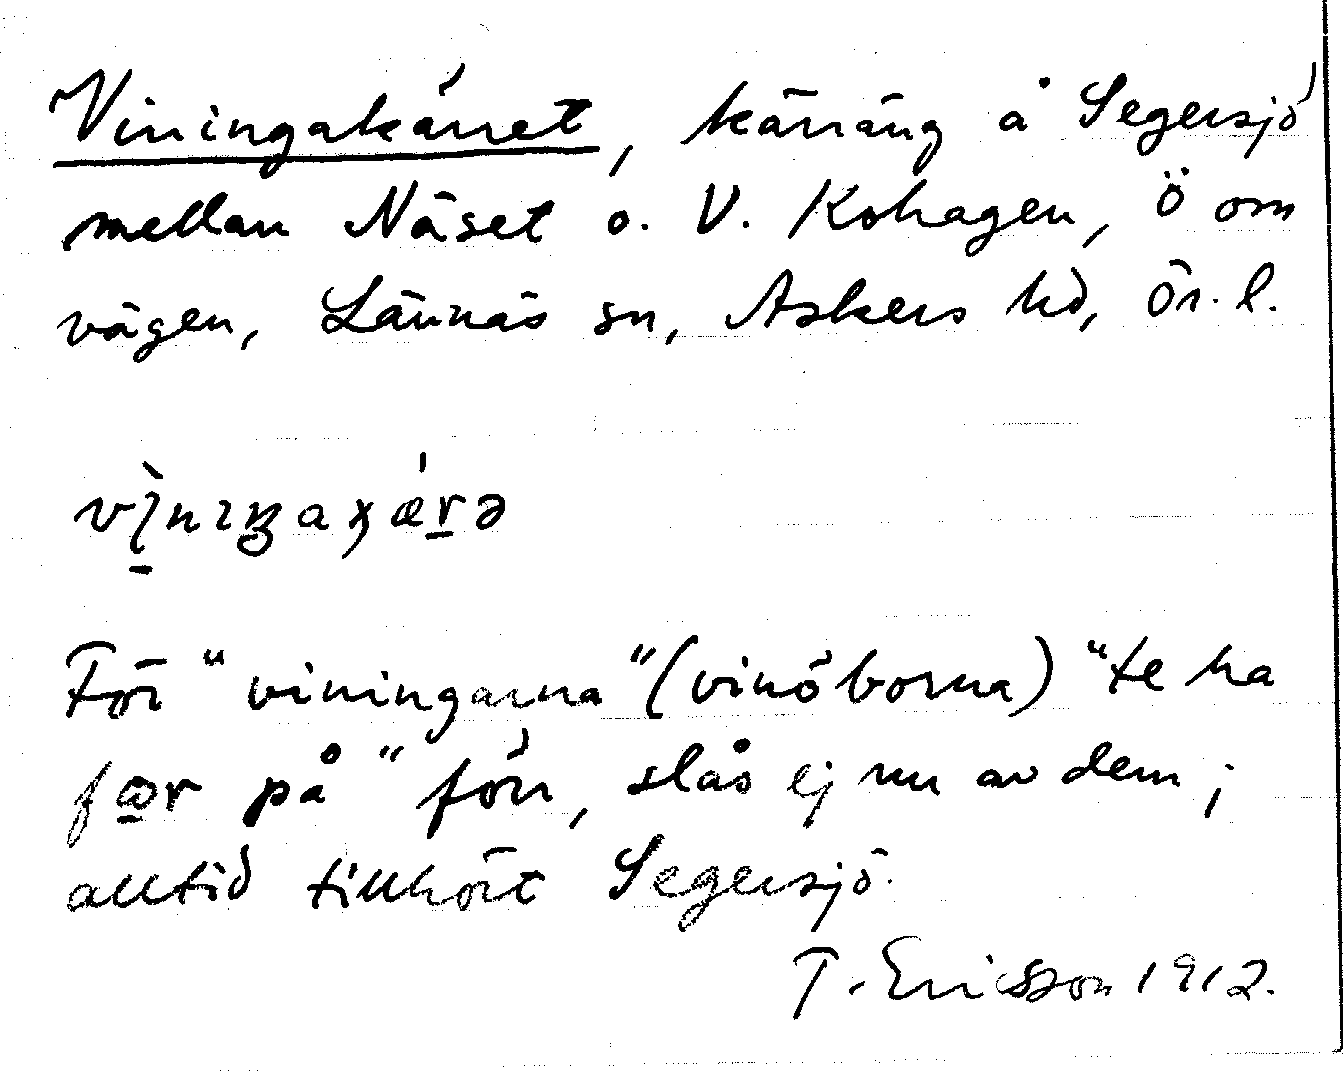 Viningakärret, kärräng å Segersjö
mellan Näset o. V. Kohagen, Ö om
vägen, Lännäs sn, Askers hd, Ör. l.
För "viningarna" (vinöborna) "te ha
fœr på" förr, slås ej nu av dem;
alltid tillhört Segersjö.
T. Ericsson 1912.